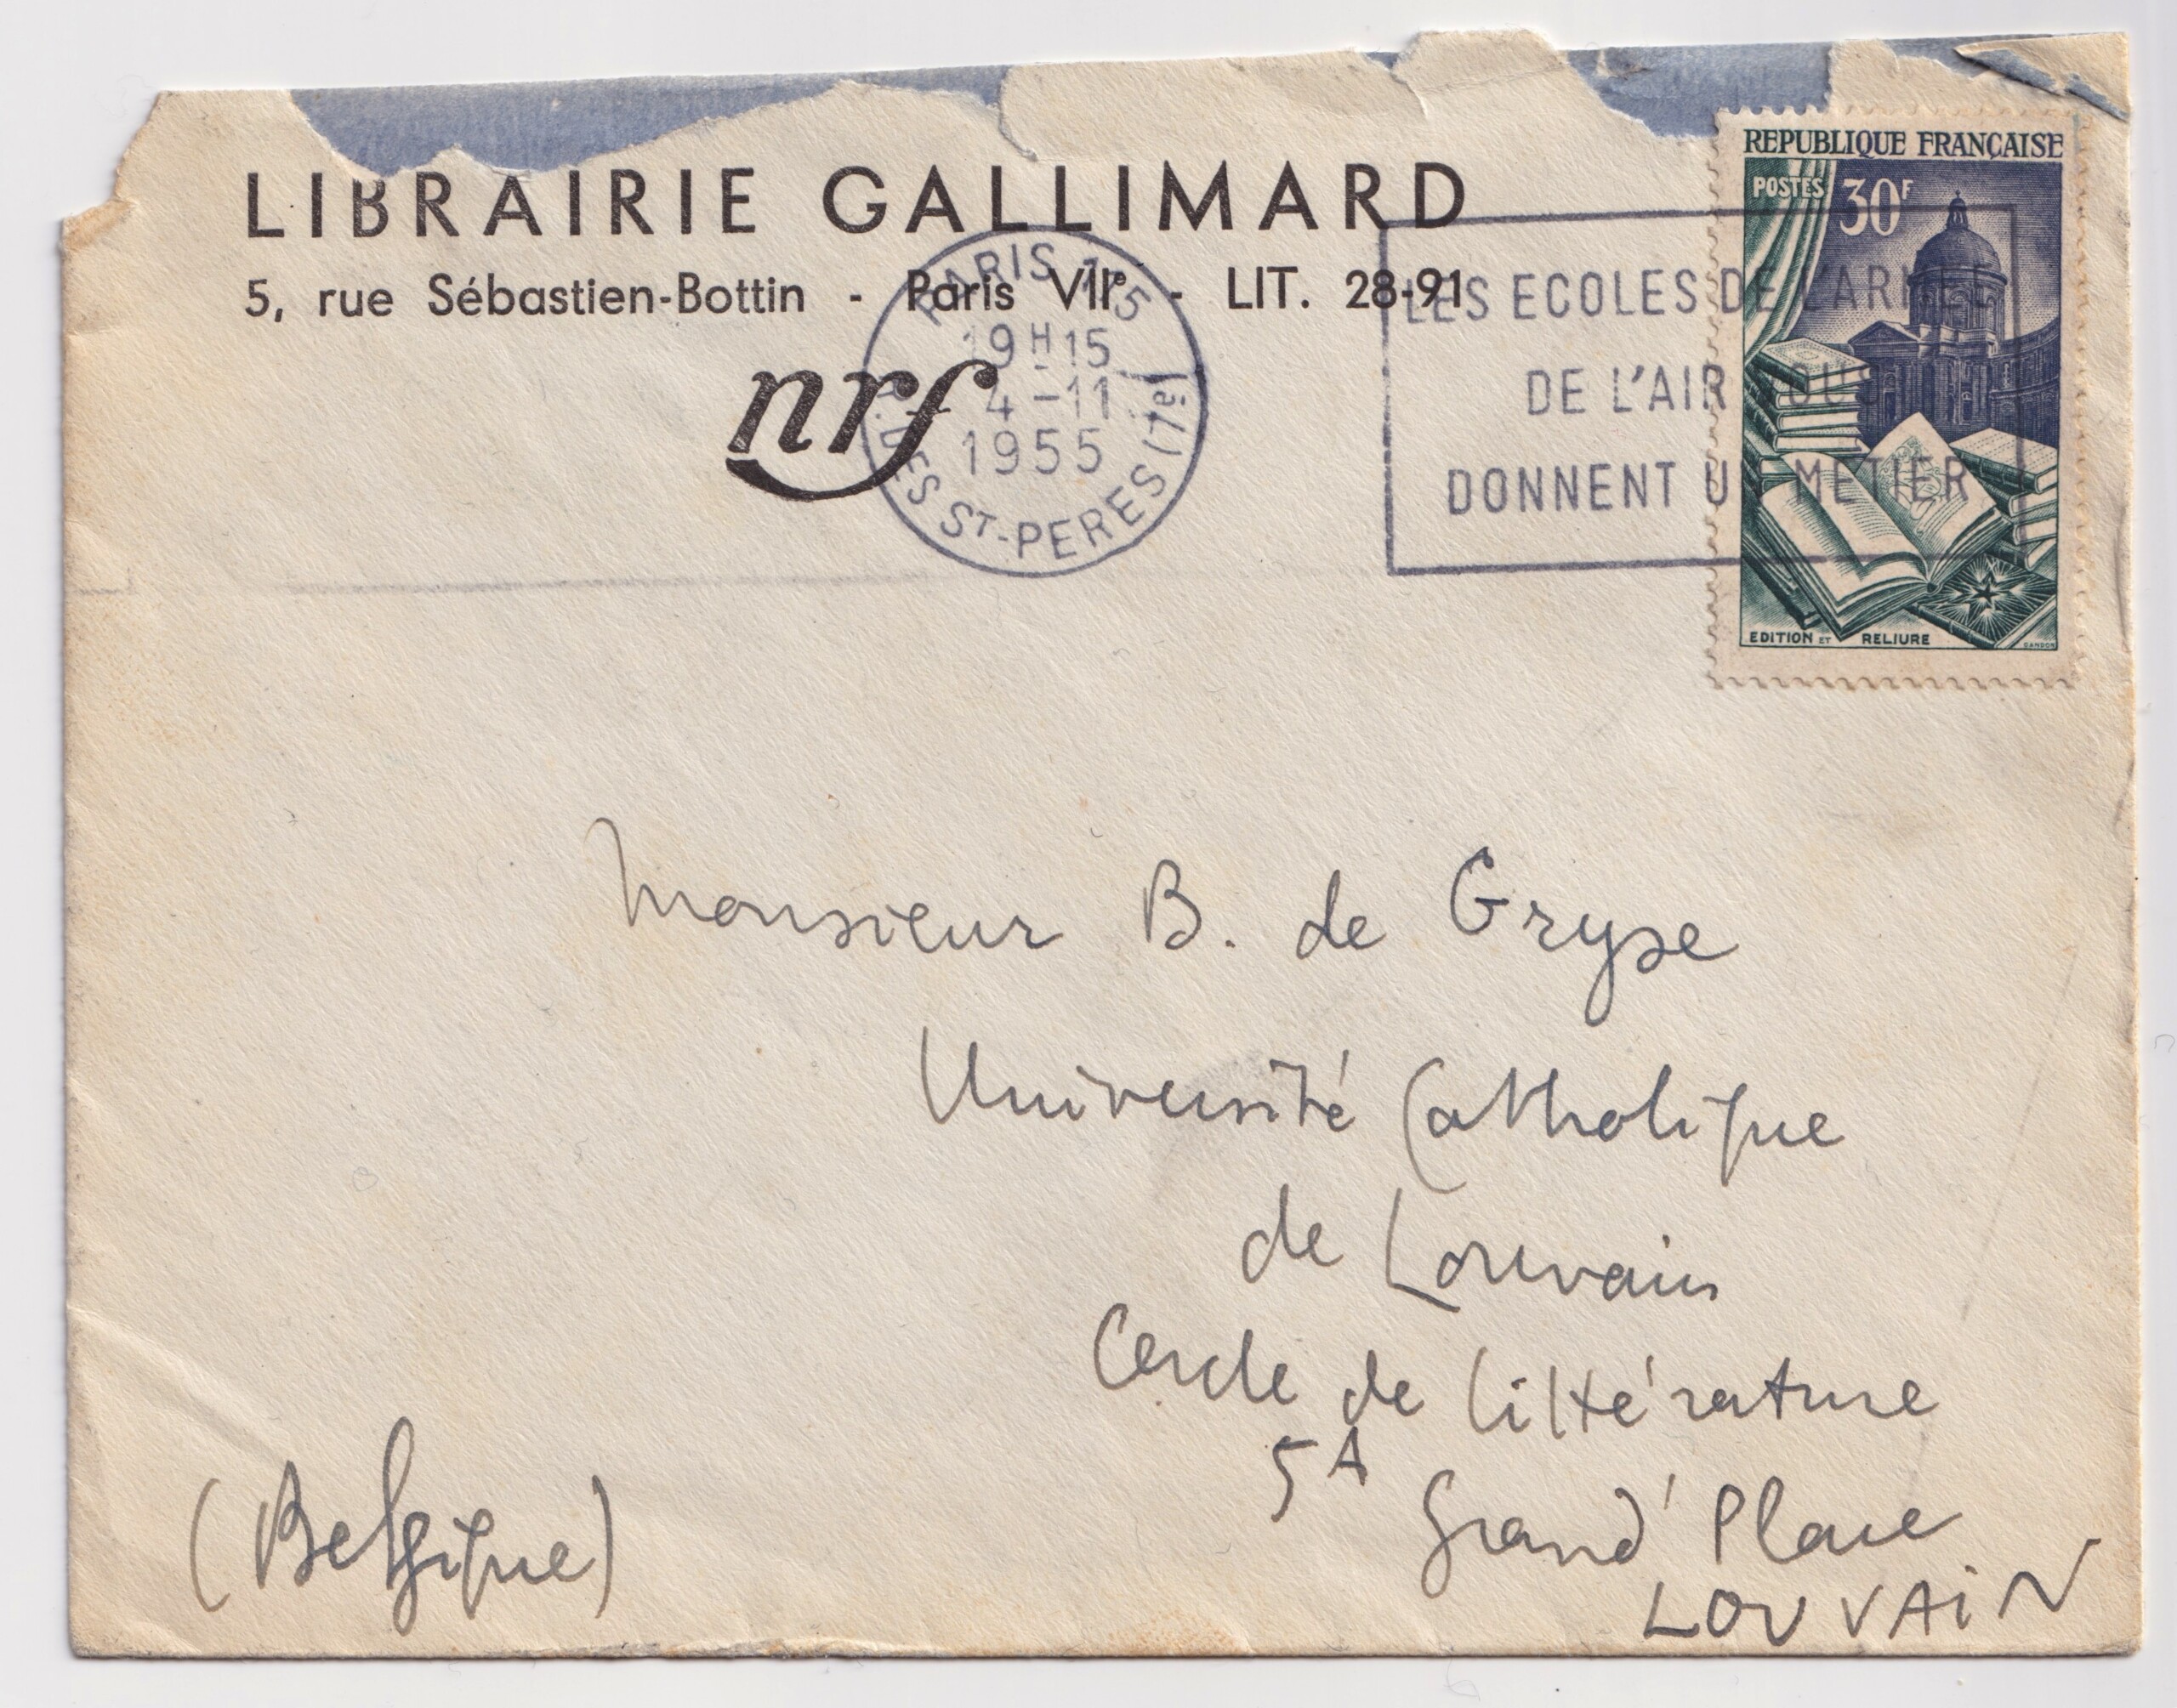 LIBRAIRIE GALLIMARD
5, rue Sébastien-Bottin - Paris VIIe - LIT. 28-91
nrf
PARIS 115
19H15
4-11
1955
R. DES ST-PERES (7e)
LES ECOLES DE L'ARMEE
DE L'AIR VOUS
DONNENT UN METIER
REPUBLIQUE FRANÇAISE
POSTES 30F
EDITION ET RELIURE
GANDON
Monsieur B. de Gryse
Université Catholique
de Louvain
Cercle de littérature
5A Grand' Place
LOUVAIN
(Belgique)